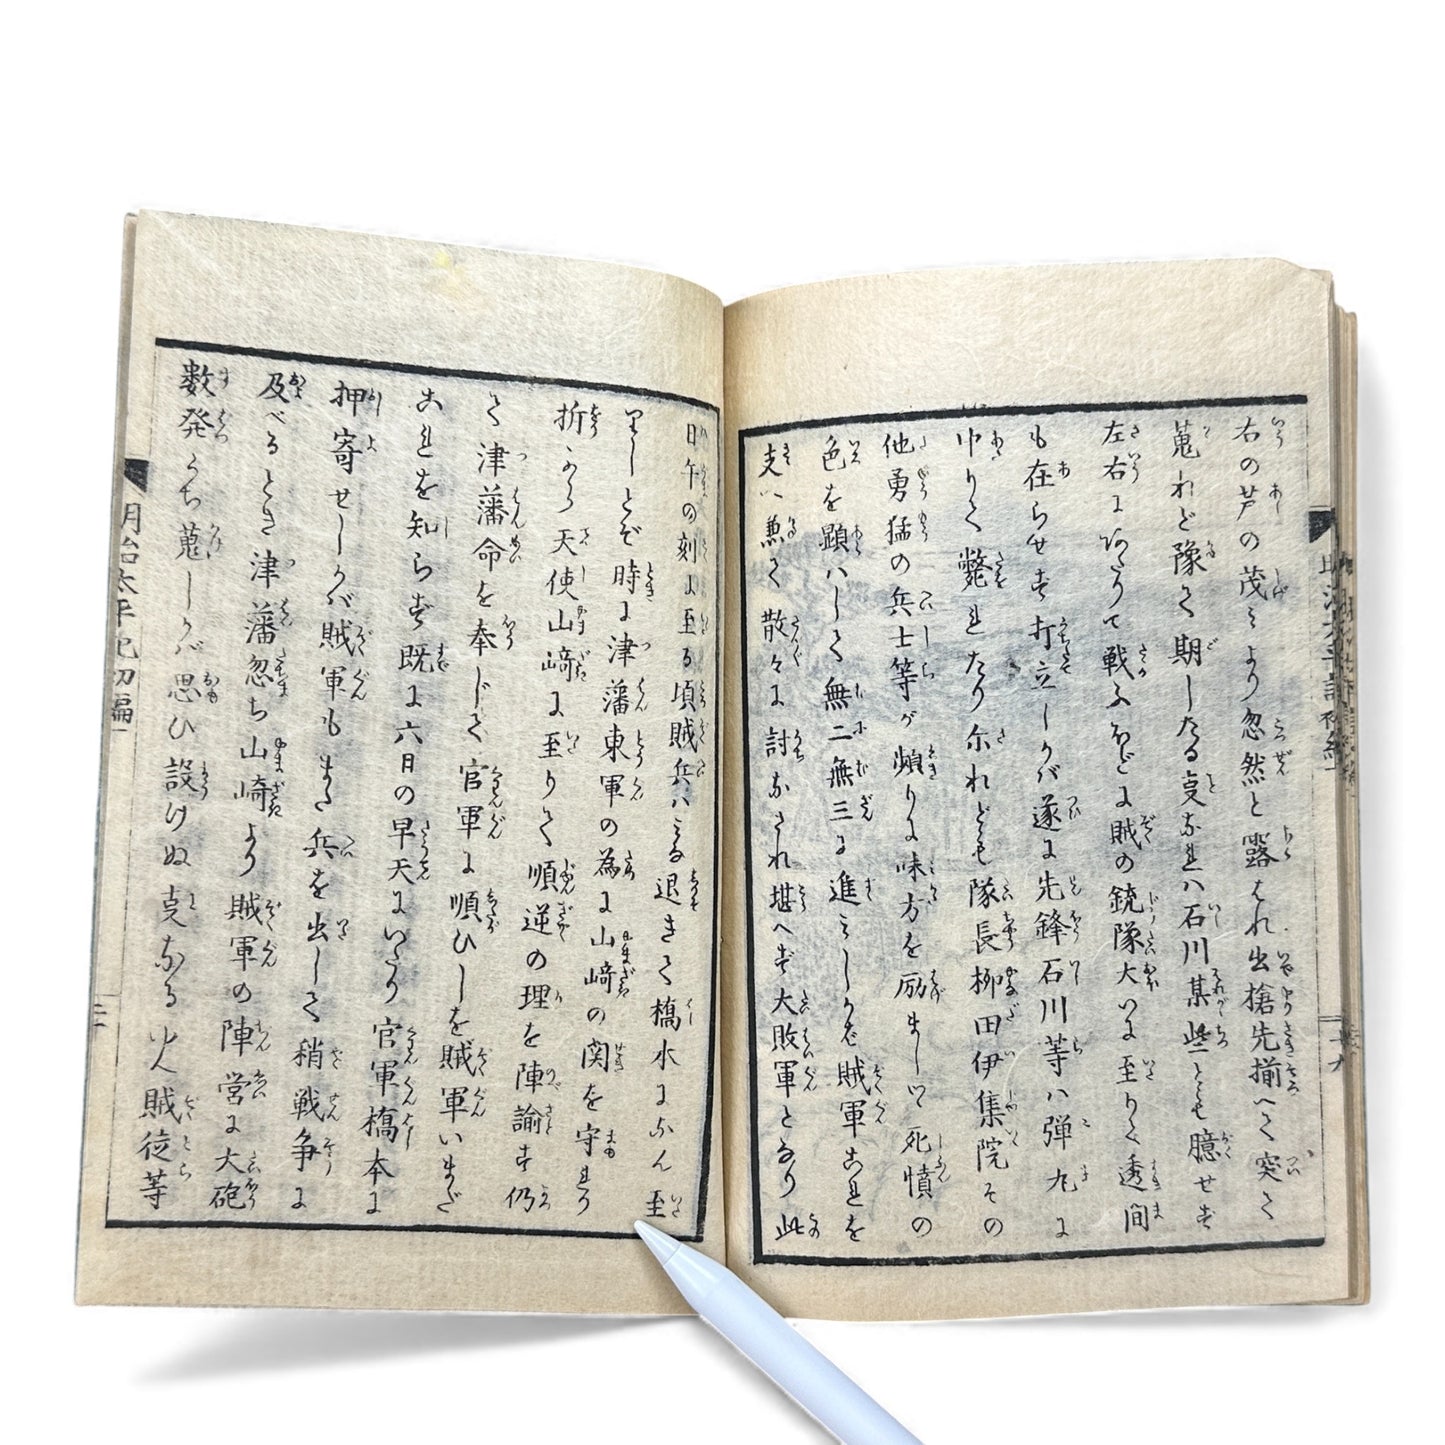 右の芦の茂みより忽然と露はれ出槍先揃へて突て
蒐れど豫て期したる㕝なれハ石川某些とも臆せず
左右にあたりて戦ふほどに賊の銃隊大いに至りて透間
も在らせず打立しかバ遂に先鋒石川等ハ弾丸に
中りて斃れたり尓れども隊長柳田伊集院その
他勇猛の兵士等が頻りに味方を励ましつゝ死憤の
色を顕ハして無二無三に進みしかば賊軍これを
支へ兼て散々に討なされ堪へず大敗軍となり此
日午の刻に至る頃賊兵ハみな退きて橋本にぶん至
りしとぞ時に津藩東軍の為に山﨑の関を守り
折から天使山﨑に至りて順逆の理を陣諭す仍
て津藩命を奉じて官軍に順ひしを賊軍いまだ
これを知らず既に六日の早天にいたり官軍橋本に
押寄せしかバ賊軍もまた兵を出して稍戦争に
及べるとき津藩忽ち山﨑より賊軍の陣営に大砲
数発うち蒐しかバ思ひ設けぬ㕝なるゆへ賊徒等
明治太平記初編